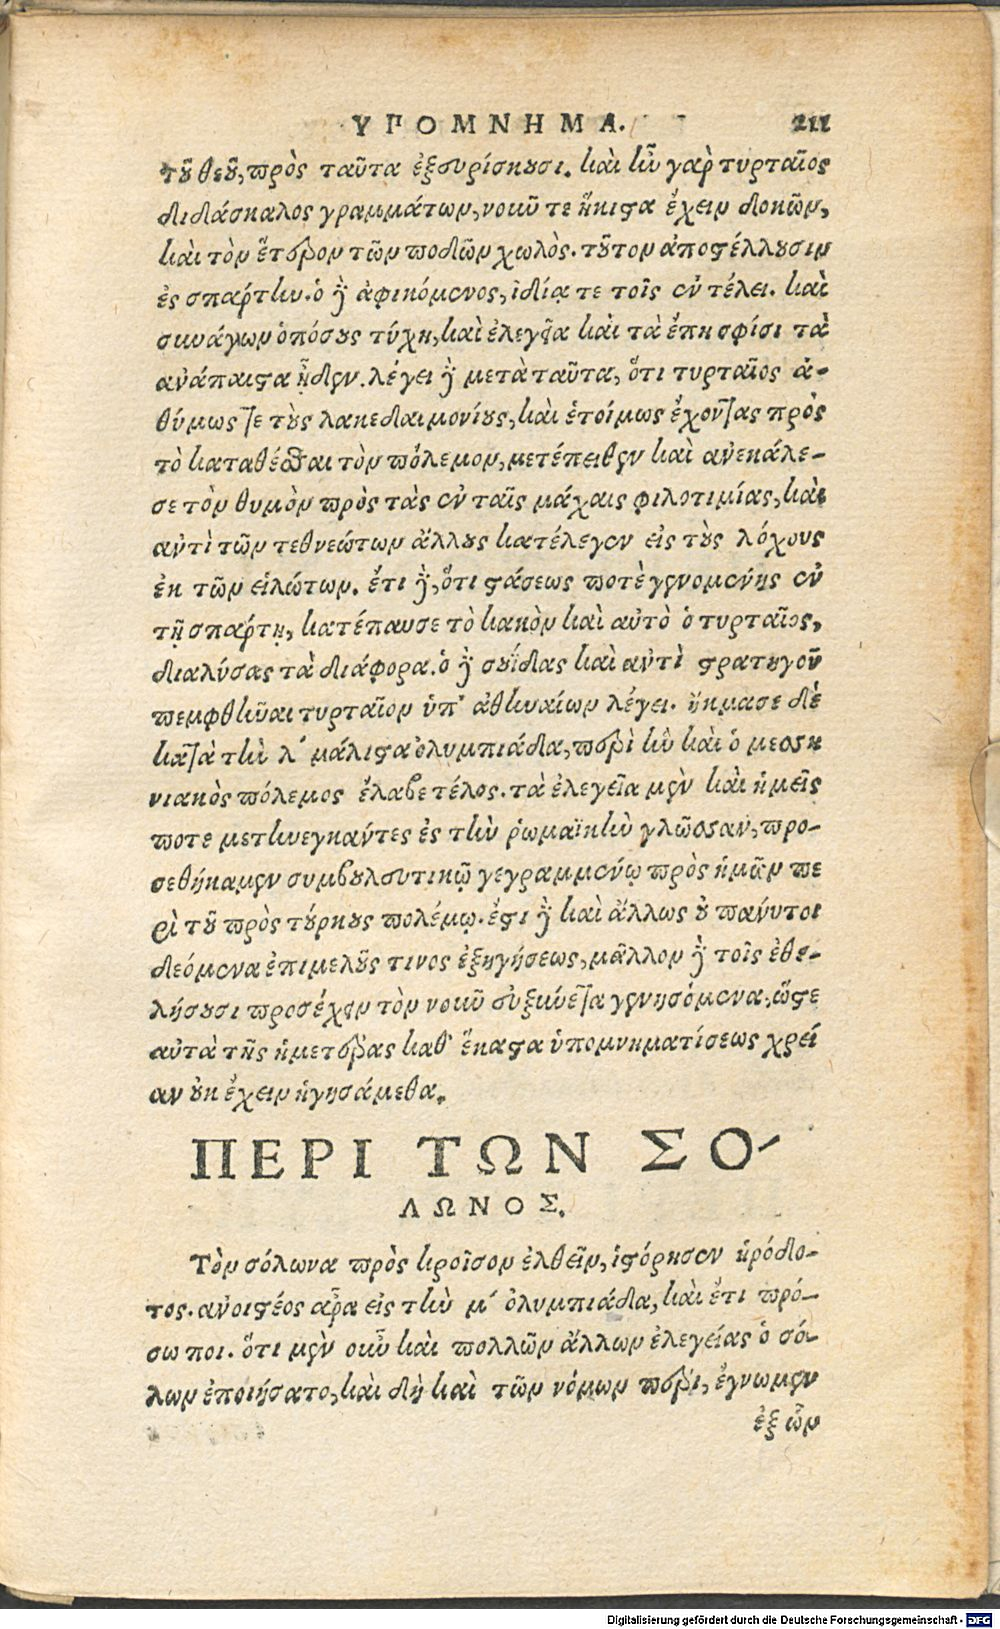 ΥΠΟΜΝΗΜΑ. 211
τοῦ θεοῦ, πρὸς ταῦτα ἐξευρίσκουσι. καὶ ἦν γὰρ τυρταῖος
διδάσκαλος γραμμάτων, νοῦν τε ἥκιστα ἔχειν δοκῶν,
καὶ τὸν ἕτερον τῶν ποδῶν χωλὸς. τοῦτον ἀποστέλλουσιν
ἐς σπάρτην. ὁ δὲ ἀφικόμενος, ἰδίᾳ τε τοῖς ἐν τέλει. καὶ
συνάγων ὁπόσους τύχη, καὶ ἐλεγεῖα καὶ τὰ ἔπη σφίσι τὰ
ἀνάπαιστα ᾖδεν. λέγει δὲ μετὰ ταῦτα, ὅτι τυρταῖος ἀ-
θύμως τε τοὺς λακεδαιμονίους, καὶ ἑτοίμως ἔχοντας πρὸς
τὸ καταθέσθαι τὸν πόλεμον, μετέπειθεν καὶ ἀνεκάλε-
σε τὸν θυμὸν πρὸς τὰς ἐν ταῖς μάχαις φιλοτιμίας, καὶ
ἀντὶ τῶν τεθνεώτων ἄλλους κατέλεγεν εἰς τοὺς λόχους
ἐκ τῶν εἱλώτων. ἔτι δὲ, ὅτι στάσεως ποτὲ γενομένης ἐν
τῇ σπάρτῃ, κατέπαυσε τὸ κακὸν καὶ αὐτὸ ὁ τυρταῖος,
διαλύσας τὰ διάφορα. ὁ δὲ σουίδας καὶ ἀντὶ στρατηγοῦ
πεμφθῆναι τυρταῖον ὑπ' ἀθηναίων λέγει. ἤκμασε δὲ
κατὰ τὴν λ΄ μάλιστα ὀλυμπιάδα, περὶ ἣν καὶ ὁ μεσση
νιακὸς πόλεμος ἔλαβε τέλος. τὰ ἐλεγεῖα μὲν καὶ ἡμεῖς
ποτε μετενεγκάντες ἐς τὴν ῥωμαϊκὴν γλῶσσαν, προ-
σεθήκαμεν συμβουλευτικῷ γεγραμμένῳ πρὸς ἡμῶν πε
ρὶ τοῦ πρὸς τούρκους πολέμῳ. ἔστι δὲ καὶ ἄλλως οὐ πανύτοι
δεόμενα ἐπιμελοῦς τινος ἐξηγήσεως, μᾶλλον δὲ τοῖς ἐθε-
λήσουσι προσέχειν τὸν νοῦν συξυνετὰ γενησόμενα, ὥστε
αὐτὰ τῆς ἡμετέρας καθ' ἕκαστα ὑπομνηματίσεως χρεί
αν οὐκ ἔχειν ἡγησάμεθα.
ΠΕΡΙ ΤΩΝ ΣΟ-
ΛΩΝΟΣ.
Τὸν σόλωνα πρὸς κροῖσον ἐλθεῖν, ἱστόρησεν ἡρόδο-
τος. ἀνοιστέος ἄρα εἰς τὴν μ΄ ὀλυμπιάδα, καὶ ἔτι πρό-
σω ποι. ὅτι μὲν οὖν καὶ πολλῶν ἄλλων ἐλεγείας ὁ σό-
λων ἐποιήσατο, καὶ δὴ καὶ τῶν νόμων περὶ, ἔγνωμεν
ἐξ ὧν
Digitalisierung gefördert durch die Deutsche Forschungsgemeinschaft - DFG